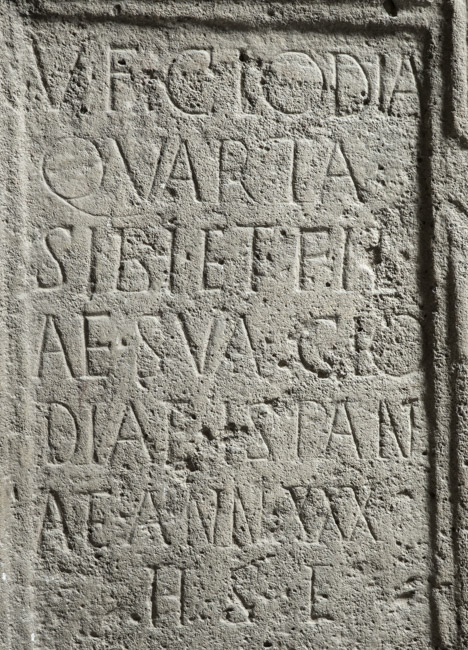 V·F·CLODIA
QVARTA
SIBI·ET·FIL
AE·SVA·CLO
DIAE·HISPAN
AE·ANN·XXX
H·S·E